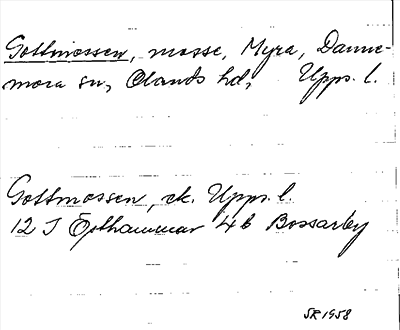 Gottmossen, mosse, Myra, Danne-
mora sn, Olands hd, Upps. l.
Gottmossen, ek. Upps. l.
12 I Östhammar 4 b Bossarby
SR 1958